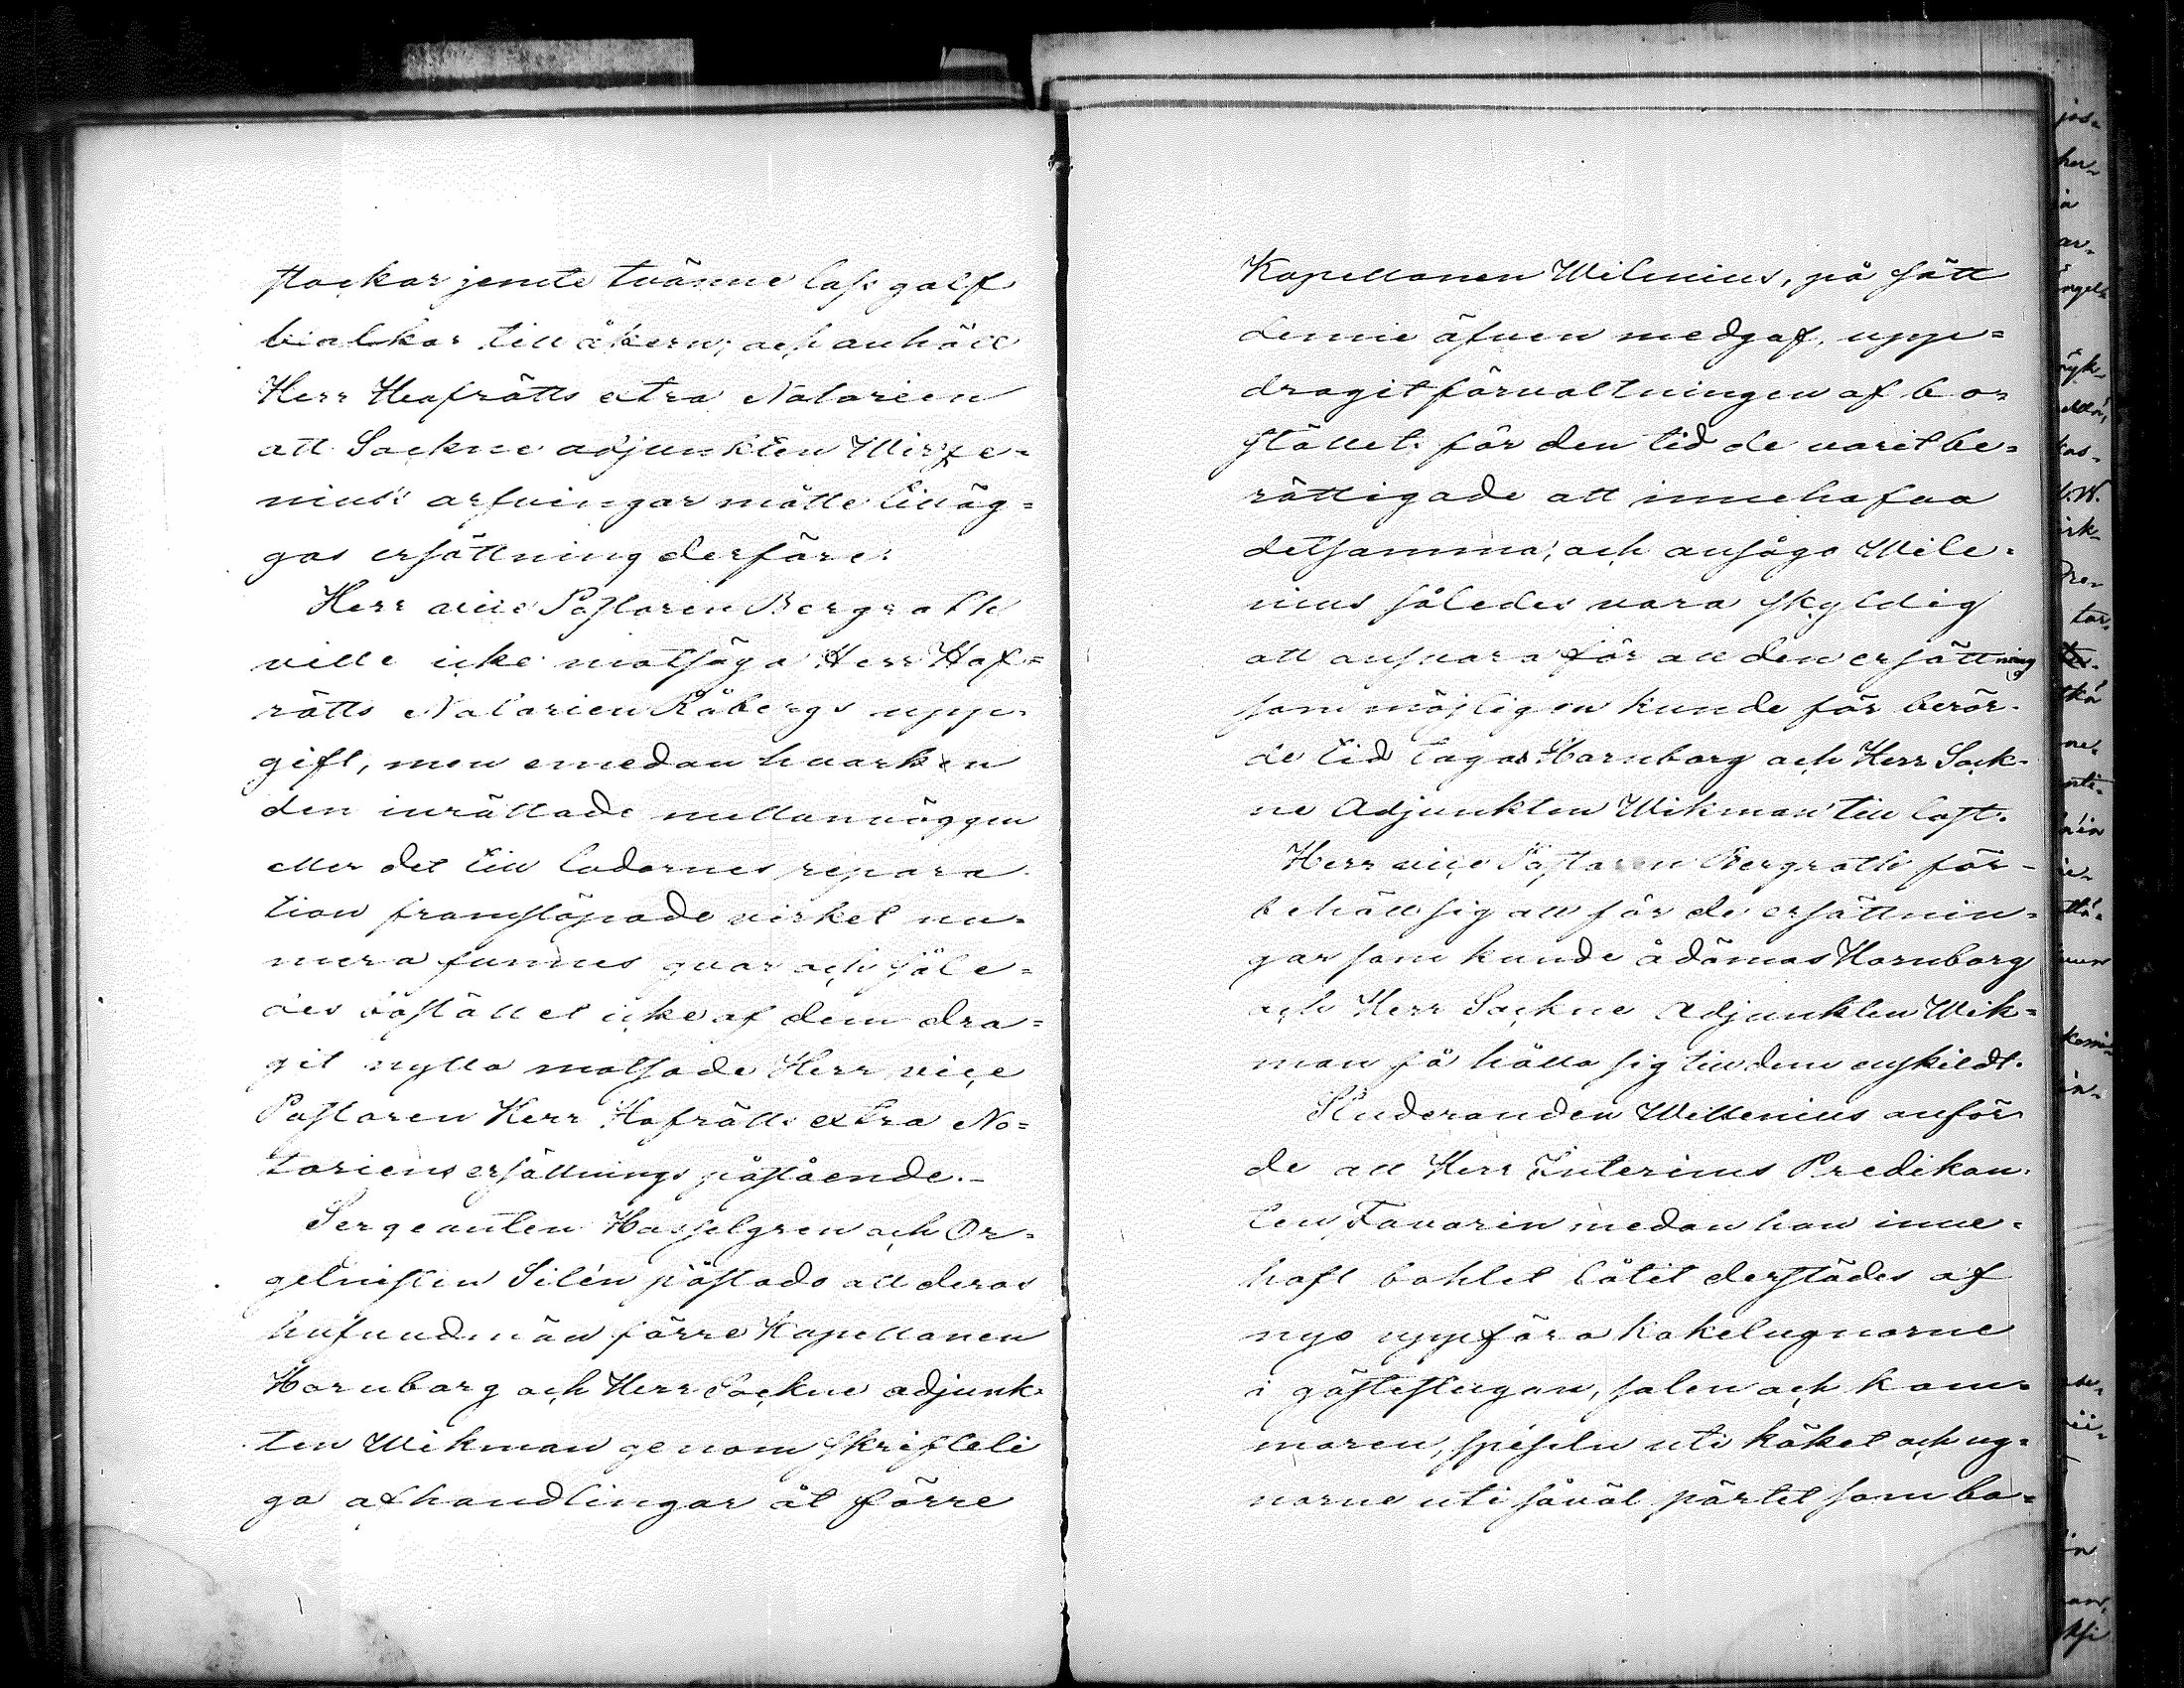 stockar jemte tvänne lass golf
bialkar till åkern; och anhöll
Herr Hofrätts extra Notarien
att Sockne adjunkten Wirze-
nius's arfvingar måtte tilläg-
gas ersättning derföre.
Herr vice Pastoren Bergroth
ville icke motsäga Herr Hof-
rätts Notarien Råbergs upp-
gift, men emedan hvarken
den inrättade mellanväggen
eller det till ladornes repara
tion framsläpade virket nu-
mera funnes qvar och såle-
des bostället icke af dem dra-
git nytta motsade Herr vice
Pastoren Herr Hofrätts extra No-
tariens ersättnings påstående.-
Sergeanten Hasselgren och Or-
gelnisten Silén påstodo att deras
hufvudmän förre Kapellanen
Hornborg och Herr Sockne adjunk-
ten Wikman genom skrifteli
ga afhandlingar åt förre
Kapellanen Wilenius, på sätt
denne äfven medgaf, upp-
dragit förvaltningen af bo-
stället för den tid de varit be-
rättigade att innehafva
detsamma; och ansågo Wile-
nius således vara skyldig
att ansvara för all den ersättning
som möjligen kunde för berör-
de tid lagas Hornborg och Herr Sock-
ne Adjunkten Wikman till last.
Herr vice Pastoren Bergroth för-
behöll sig att för de ersättnin-
gar som kunde ådömas Hornborg
och Herr Sockne Adjunkten Wik-
man få hålla sig till dem enskildt.
Studeranden Willenius anför-
de att Herr Interims Predikan
ten Favorin medan han inne-
haft bohlet låtit derstädes af
nyo uppföra kakelugnarne
i gästestugan, salen och kam-
maren, spiseln uti köket och ug-
narne uti såväl pörtet som ba-